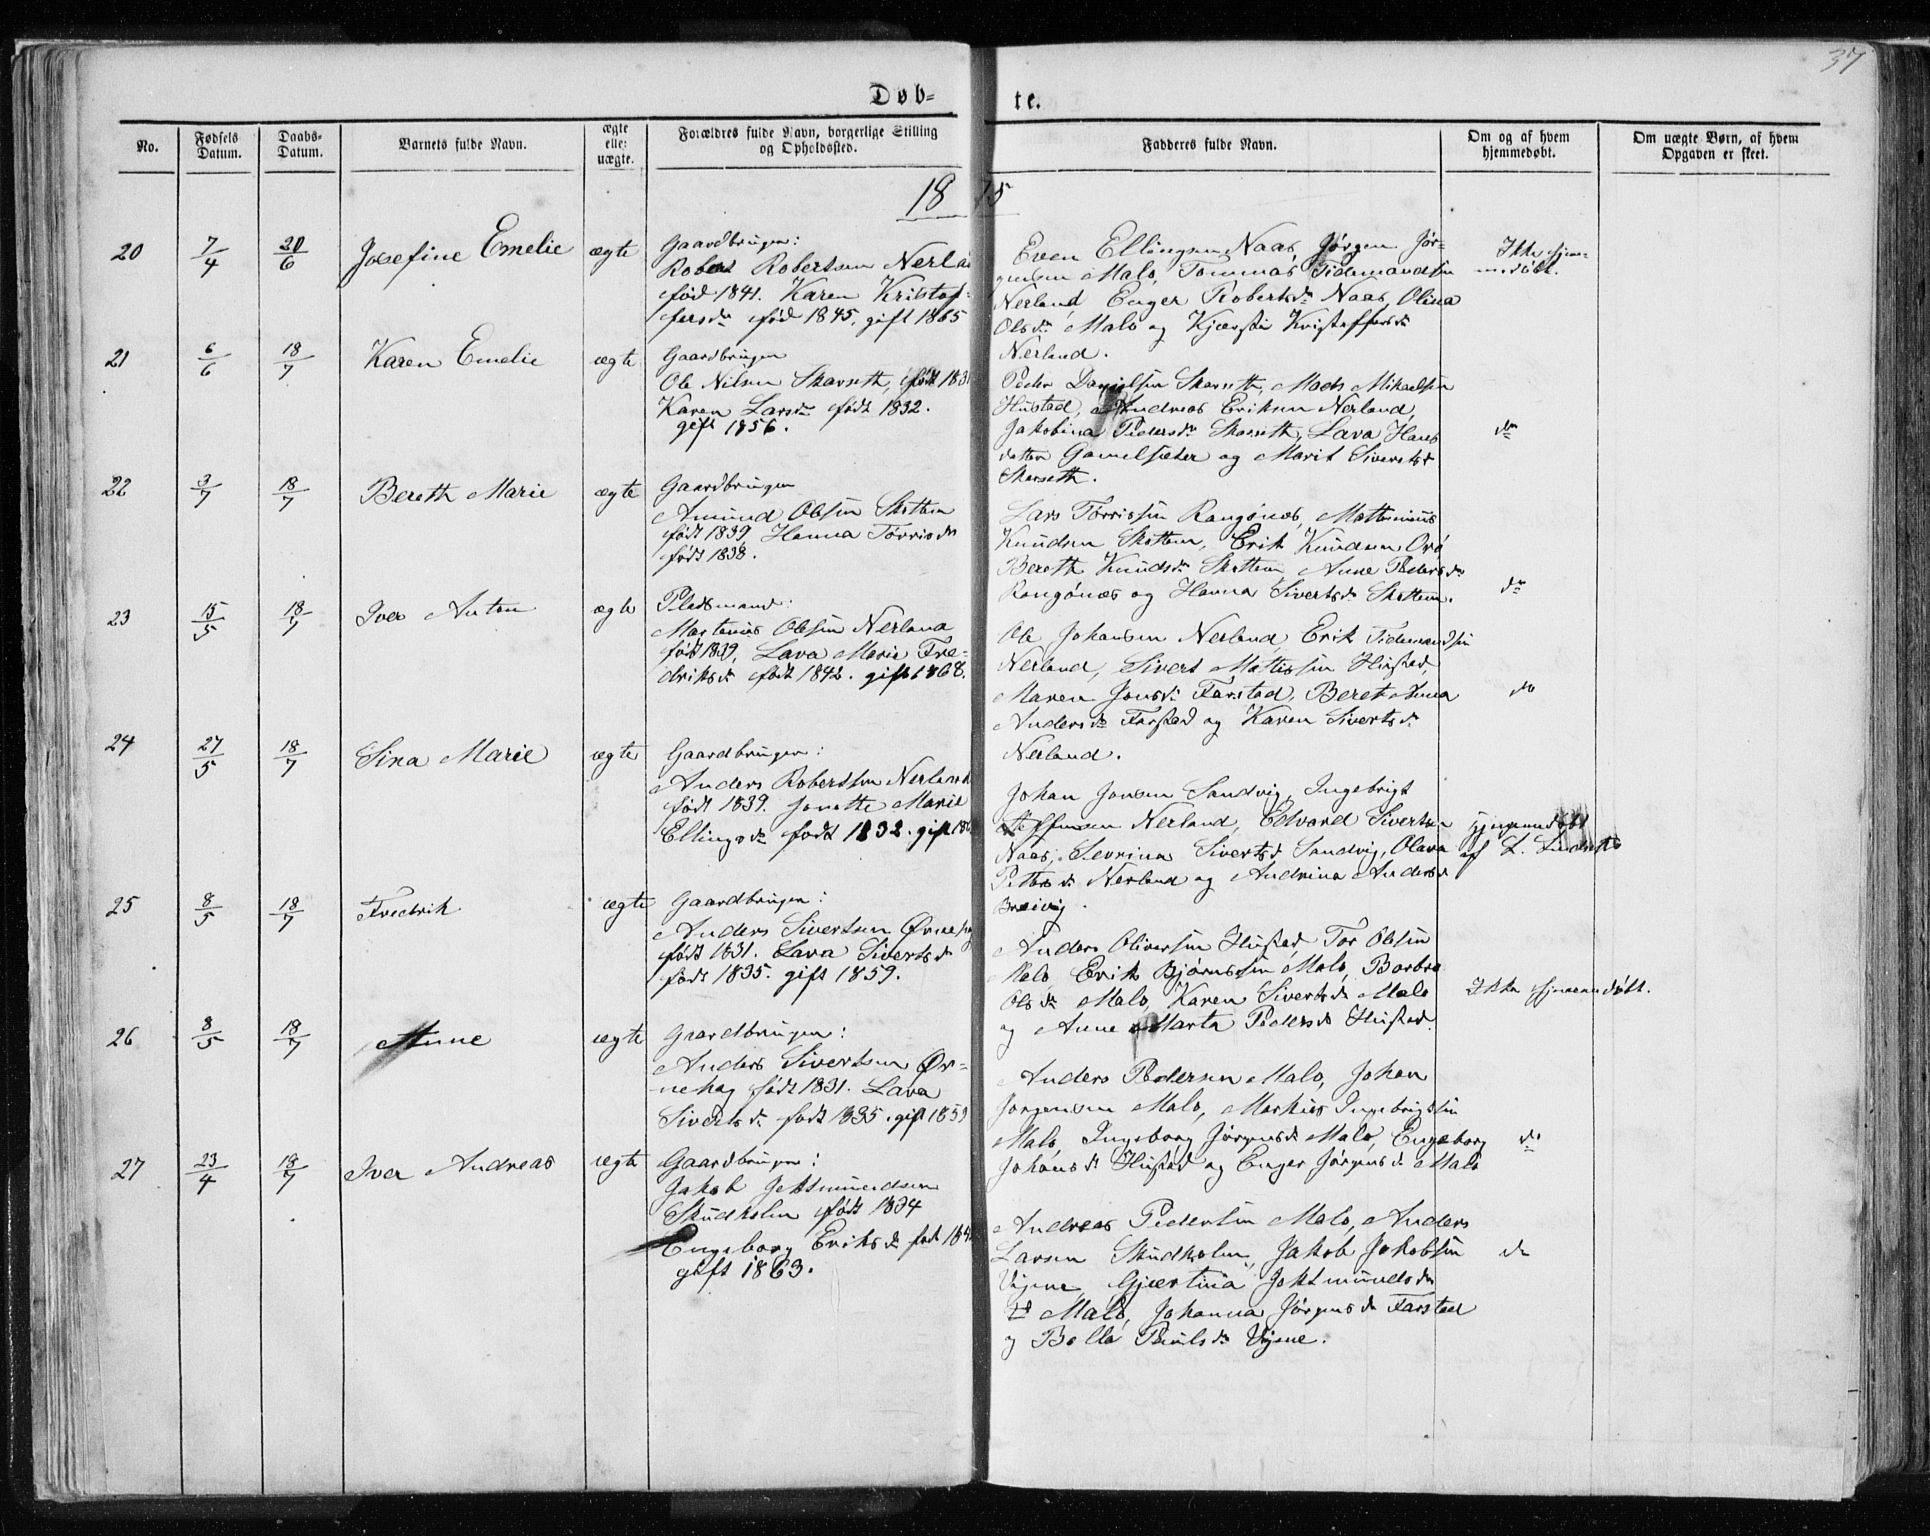 37
Døb-
te.
No.
Fødsels Datum.
Daabs-Datum.
Barnets fulde Navn.
ægte elle: uægte.
Forældres fulde Navn, borgerlige Stilling
og Opholdssted.
Fadderes fulde Navn.
Om og af hvem
hjemmedøbt.
Om uægte Børn, af hvem
Opgaven er skeet.
18 75
20 7/4 20/6 Josefine Emelie ægte Gaardbruger:
Robert Robertsen Nerla
fød 1841. Karen Kristof-
fersdr fød 1845, gift 1865
Even Ellingsen Naas, Jørgen Jør-
gensen Malo, Tommas Tidemandsen
Nerland, Enger Robertsdr Naas, Olina
Olsdr Malo og Kjærsti Kristoffersdr
Nerland.
Ikke hjem-
medøbt.
21 6/6 18/7 Karen Emelie ægte Gaardbruger
Ole Nilsen Skarseth, født 183
Karen Larsdr født 1832.
gift 1856.
Peder Danielsen Skarseth, Mads Mikaelsen
Hustad, Andreas Eriksen Nerland,
Jakobina Pedersdr Skarseth, Lava Hans
datter Gamelsæter og Marit Sivertsd
Skarseth.
do
22 3/7 18/7 Bereth Marie ægte Gaardbruger
Amund Olsen Skottem
født 1839, Hanna Torrisdr
født 1838.
Lars Torrissen Rangønæs, Mattemius
Knudsen Skottem, Erik Knudsen Orø
Bereth Knudsdr Skottem, Anne Pedersdr
Rangønæs og Hanna Sivertsdr Skottem.
do
23 15/5 18/7 Iver Anton ægte Pladsmand:
Martenius Olsen Nerland
født 1839, Lava Marie Fre-
driksdr født 1842. gift 1868.
Ole Johansen Nerland, Erik Tidemandsen
Nerland, Sivert Mattissen Hustad,
Maren Jonsdr Farstad, Beret Anna
Andersdr Farstad og Karen Sivertsdr
Nerland.
do
24 27/5 18/7 Sina Marie ægte Gaardbruger:
Anders Robertsen Nerland
født 1839. Jonette Marie
Ellingsdr født 1832. gift 18
Johan Jonsen Sandvig, Ingebrigt
Steffensen Nerland, Edvard Sivertsen
Naas, Sevrina Sivertsd Sandvig, Olava
Pettersdr Nerland og Andrina Andersd
Breivig.
hjemmedøbt
af L.
25 8/5 18/7 Fredrik ægte Gaardbruger:
Anders Sivertsen Ørneha
født 1831. Lava Sivertsdr
født 1835. gift 1859.
Anders Oliversen Hustad, Tor Olsen
Malo, Erik Bjørnssen Malo, Barbra
Olsdr Malo, Karen Sivertsdr Malo
og Anne Marta Pedersdr Hustad.
Ikke hjemmedøbt.
26 8/5 18/7 Anne ægte Gaardbruger:
Anders Sivertsen Ør-
nehag født 1831. Lava
Sivertsdr født 1835. gift 1859
Anders Pedersen Malo, Johan
Jørgensen Malo, Markus Ingebrigtsen
Malo, Ingeborg Jørgensdr Malo, Engeborg
Johansdr Hustad og Enger Jørgensdr Malo
do
27 23/4 18/7 Iver Andreas ægte Gaardbruger:
Jakob Jetmundsen
Skudholm født 1834
Engeborg Eriksdr født 184
gift 1863.
Andreas Pedersen Malo, Anders
Larsen Skudholm, Jakob Jakobsen
Vigene, Gjertina Jetmundsdr
Malo, Johanna Jørgensdr Farstad
og Bolla Paulsdr Vigene.
do